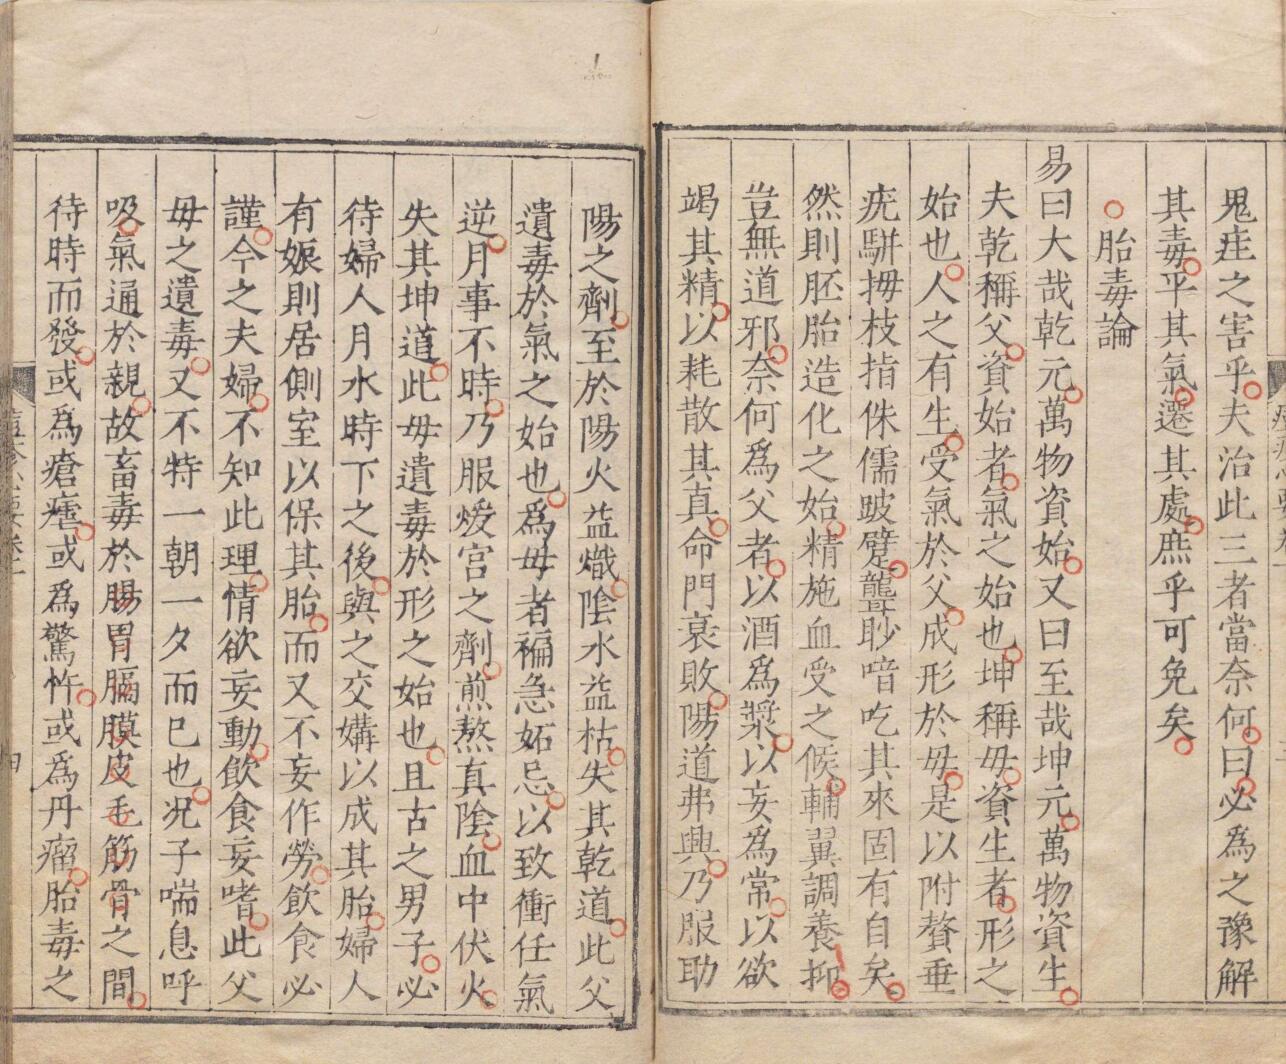 鬼疰之害乎夫治此三者當奈何曰必為之豫解
其毒平其氣遷其處庶乎可免矣
胎毒論
易曰大哉乾元萬物資始又曰至哉坤元萬物資生
夫乾稱父資始者氣之始也坤稱母資生者形之
始也人之有生受氣於父成形於母是以附贅垂
疣駢拇枝指侏儒跛躄聾眇喑吃其來固有自矣
然則胚胎造化之始精施血受之候輔翼調養抑
豈無道邪奈何為父者以酒為漿以妄為常以欲
竭其精以耗散其真命門衰敗陽道弗興乃服助
陽之劑至於陽火益熾陰水益枯失其乾道此父
遺毒於氣之始也為母者褊急妬忌以致衝任氣
逆月事不時乃服煖宮之劑煎熬真陰血中伏火
失其坤道此母遺毒於形之始也且古之男子必
待婦人月水時下之後與之交媾以成其胎婦人
有娠則居側室以保其胎而又不妄作勞飲食必
謹今之夫婦不知此理情欲妄動飲食妄嗜此父
母之遺毒又不特一朝一夕而已也况子喘息呼
吸氣通於親故畜毒於腸胃膈膜皮毛筋骨之間
待時而發或為瘡㾦或為驚忤或為丹瘤胎毒之